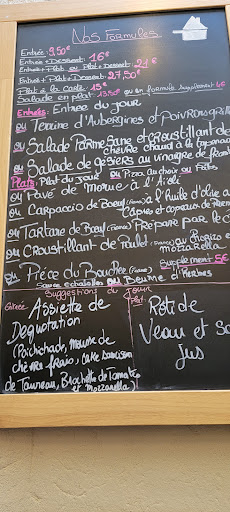 Nos Formules
Entrée 9,50€
Entrée + Dessert 16€
Entrée + Plat ou Plat + Dessert 21€
Entrée + Plat + Dessert 27,50€
Plat à la carte 15€
Salade en plat 13,50 ou en formule supplément 4€
Entrées: Entrée du jour
ou Terrine d'Aubergines et Poivrons
ou Salade Parmesane et Croustillant de
chèvre chaud à la tapenade
ou Salade de gésiers au vinaigre de
Plats: Plat du jour ou Pizza au choix ou
ou Pavé de morue à l'Aïoli
ou Carpaccio de Boeuf (France) à l'huile d'olive
Câpres et copeaux de
ou Tartare de Boeuf (France) Préparé par le
ou Croustillant de Poulet (France) au chorizo et
mozzarella
ou Pièce du Boucher (France) Supplément 5€
Sauce échalotes ou Beurre d'Herbes
Suggestions du Jour
Entrée
Assiette de
Dégustation
(Poichichade, mousse de
chèvre frais, cake
de Taureau, Brochette de Tomate
et mozzarella)
Plat
Rôti de
Veau et so
jus